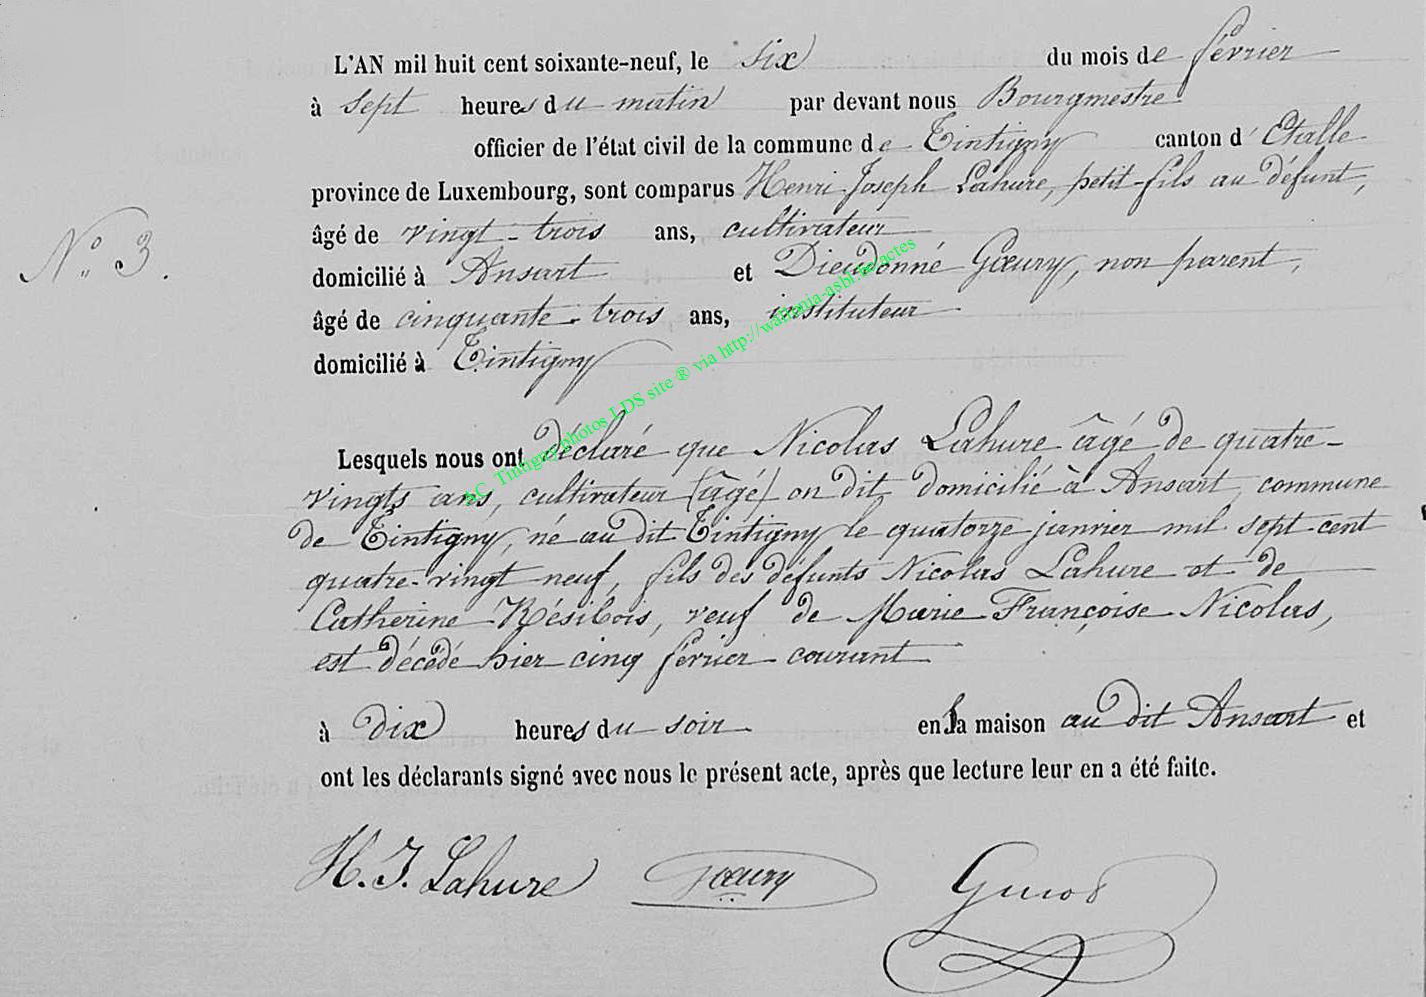 L'AN mil huit cent soixante-neuf, le six du mois de février
à sept heures du matin par devant nous Bourgmestre
officier de l'état civil de la commune de Tintigny canton d'Etalle
province de Luxembourg, sont comparus Henri-Joseph Lahure, petit-fils au défunt,
N° 3.
âgé de vingt-trois ans, cultivateur
domicilié à Ansart et Dieudonné Gœury, non parent,
âgé de cinquante-trois ans, instituteur
domicilié à Tintigny
AC Tintigny photos LDS site ® via http://wallonia-asbl.be/actes
Lesquels nous ont déclaré que Nicolas Lahure âgé de quatre-
vingts ans, cultivateur (âgé) on dit, domicilié à Ansart, commune
de Tintigny, né au dit Tintigny le quatorze janvier mil sept cent
quatre-vingt neuf, fils des défunts Nicolas Lahure et de
Catherine Résibois, veuf de Marie Françoise Nicolas,
est décédé hier cinq février courant
à dix heures du soir en sa maison au dit Ansart et
ont les déclarants signé avec nous le présent acte, après que lecture leur en a été faite.
H. J. Lahure Gœury